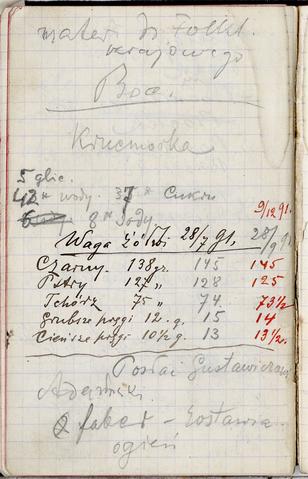 krajowego
Boa.
5 glic.
wody. 37 " Cukru
8 " Sody
9/12 91.
Waga Żółwi 28/7 91. 28/9 91
Czarny. 138 gr. 145 145
Pstry 127 " 128 125
Tchórz 75 " 74. 73½
Grubsze 12. g. 15 14
Cieńsze 10½ g. 13 13½.
Posłać Gustawiczowi
faber – Zostawia
ogień